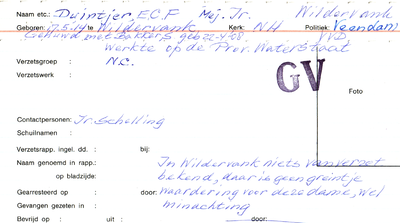 Naam etc.: Duintjer E.C.F. Mej. Jr. Wildervank
Geboren: 17.5.14 te Wildervank Kerk: NH Politiek: Veendam
Gehuwd met Bakkers geb 22-4/08. VVD
werkte op de Prov. Waterstaat
Verzetsgroep : N.C.
Verzetswerk
GV
Foto
Contactpersonen: Jr. Schelling
Schuilnamen :
Verzetsrapp. ingel. dd. : bij:
Naam genoemd in rapp.: In Wildervank niets van verzet
op bladzijde: bekend, daar is geen greintje
Gearresteerd op : door: waardering voor deze dame, wel
Gevangen gezeten in : minachting
Bevrijd op : uit : door: